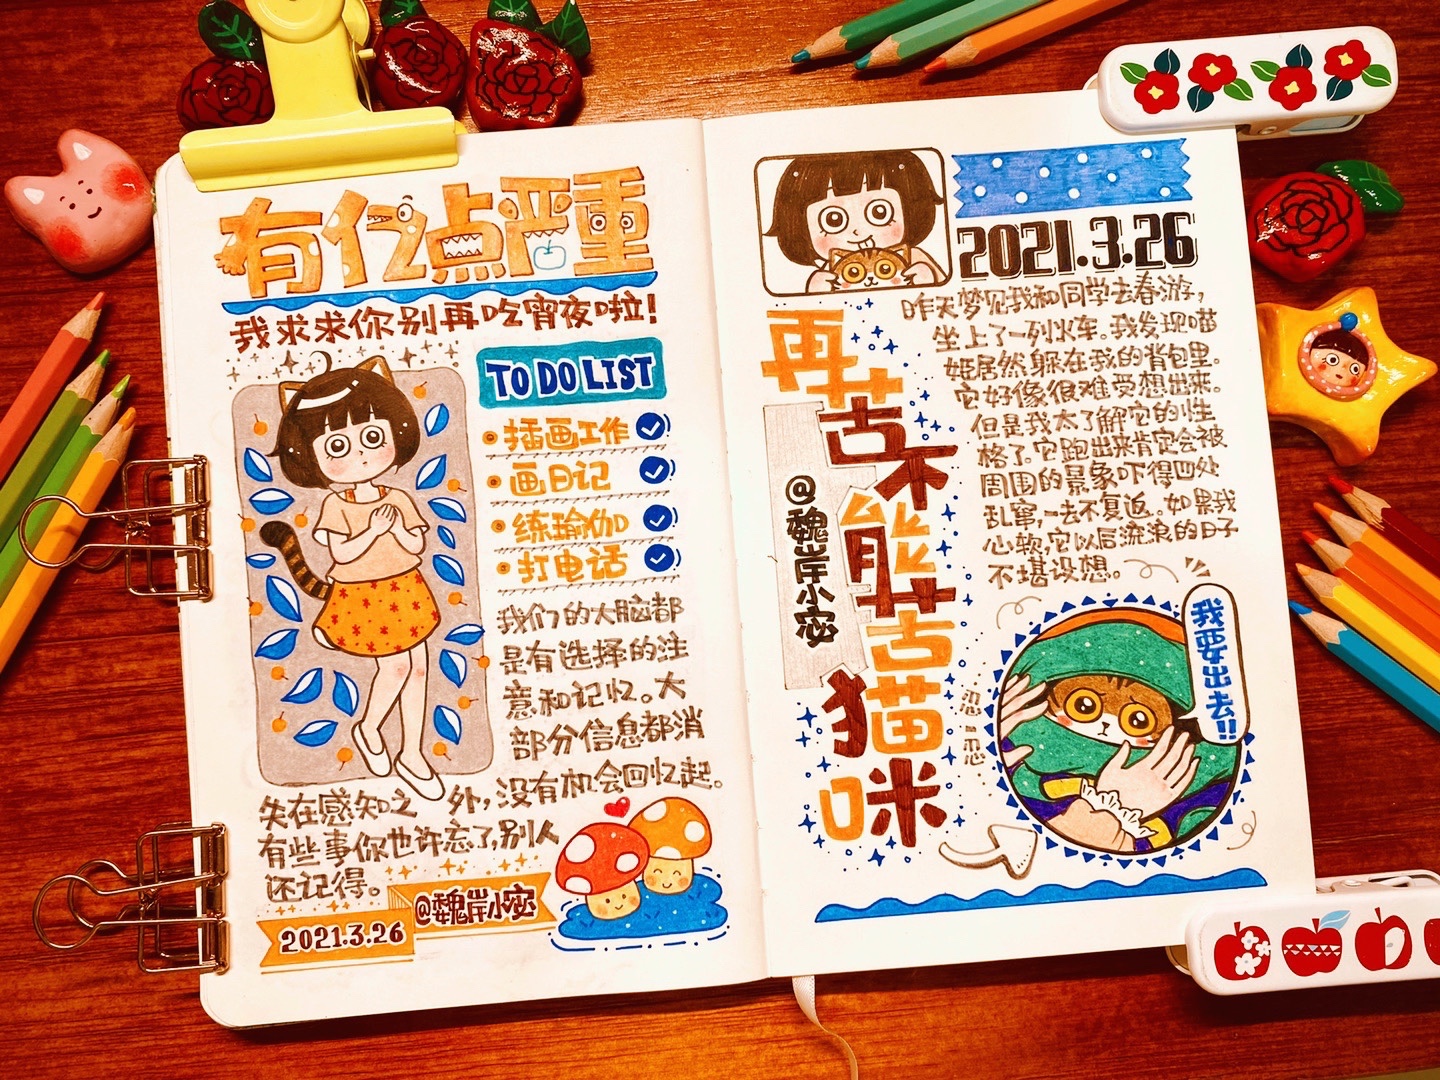 有亿点严重
我求求你别再吃宵夜啦!
TO DO LIST
插画工作
画日记
练瑜伽
打电话
我们的大脑都
是有选择的注
意和记忆。大
部分信息都消
失在感知之外,没有机会回忆起。
有些事你也许忘了,别人
还记得。
@魏岸小宓
2021.3.26
2021.3.26
昨天梦见我和同学去春游,
坐上了一列火车。我发现喵
姬居然躲在我的背包里。
它好像很难受想出来。
但是我太了解它的性
格了。它跑出来肯定会被
周围的景象吓得四处
乱窜,一去不复返。如果我
心软,它以后流浪的日子
不堪设想。
再苦不能苦猫咪
@魏岸小宓
我要出去!!
忍一忍